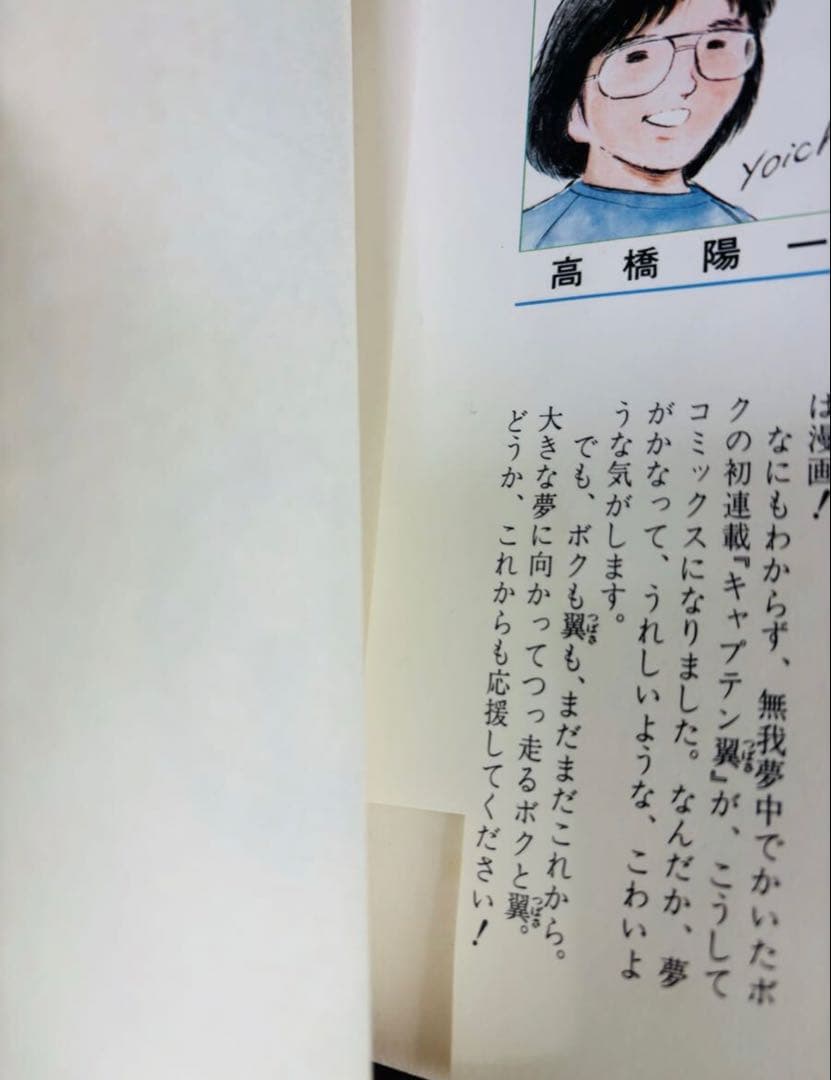 Yoich
高橋陽一
は漫画！
なにもわからず、無我夢中でかいたボ
クの初連載『キャプテン翼』が、こうして
コミックスになりました。なんだか、夢
がかなって、うれしいような、こわいよ
うな気がします。
でも、ボクも翼も、まだまだこれから。
大きな夢に向かってつっ走るボクと翼。
どうか、これからも応援してください！